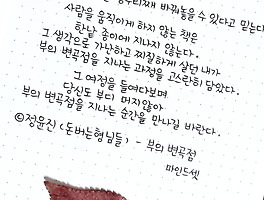 바꿔놓을 수 있다고 믿는다.
사람을 움직이게 하지 않는 책은
한낱 종이에 지나지 않는다.
그 생각으로 가난하고 찌질하게 살던 내가
부의 변곡점을 지나는 과정을 고스란히 담았다.
그 여정을 들여다보며
당신도 부디 머지않아
부의 변곡점을 지나는 순간을 만나길 바란다.
©정윤진 (돈버는형님들) - 부의 변곡점
마인드셋